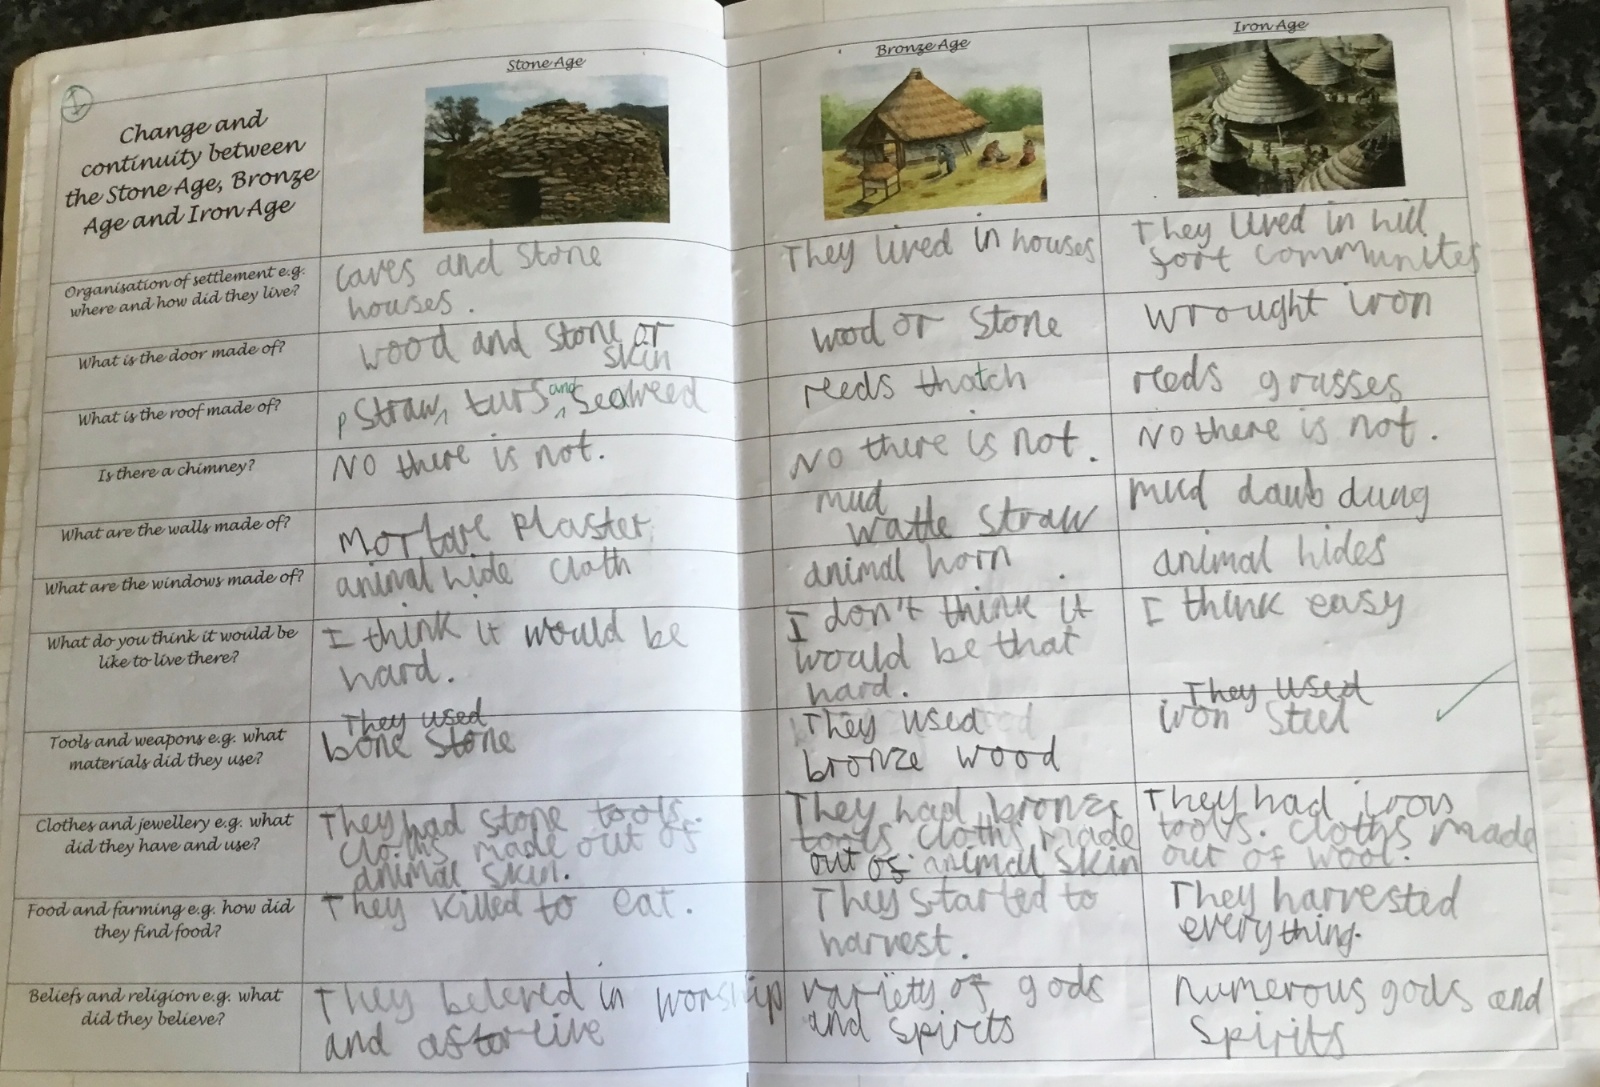 Stone Age
Bronze Age
Iron Age
Change and
continuity between
the Stone Age, Bronze
Age and Iron Age
Organisation of settlement e.g.
where and how did they live?
caves and stone
houses.
They lived in houses
They lived in hill
fort communites
What is the door made of?
wood and stone or
skin
wood or stone
wrought iron
What is the roof made of?
straw, turf and seaweed
reeds thatch
reeds grasses
Is there a chimney?
No there is not.
No there is not.
No there is not.
What are the walls made of?
Mortare Plaster
mud
wattle straw
mud daub dung
What are the windows made of?
animal hide cloth
animal horn
animal hides
What do you think it would be
like to live there?
I think it would be
hard.
I don't think it
would be that
hard.
I think easy
Tools and weapons e.g. what
materials did they use?
They used
bone stone
They used
bronze wood
They used
iron steel
Clothes and jewellery e.g. what
did they have and use?
They had stone tools.
cloths made out of
animal skin.
They had bronze
tools cloths made
out of animal skin
They had iron
tools. cloths made
out of wool.
Food and farming e.g. how did
they find food?
They killed to eat.
They started to
harvest.
They harvested
everything.
Beliefs and religion e.g. what
did they believe?
They beleved in worship
and afterlive
variety of gods
and spirits
numerous gods and
spirits